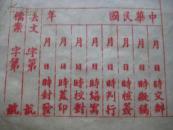 中華民國　年
月　日　時文辦
月　日　時擬稿
月　日　時核簽
月　日　時判行
月　日　時繕寫
月　日　時校對
月　日　時蓋印
月　日　時封發
去文　字第　號
檔案　字第　號